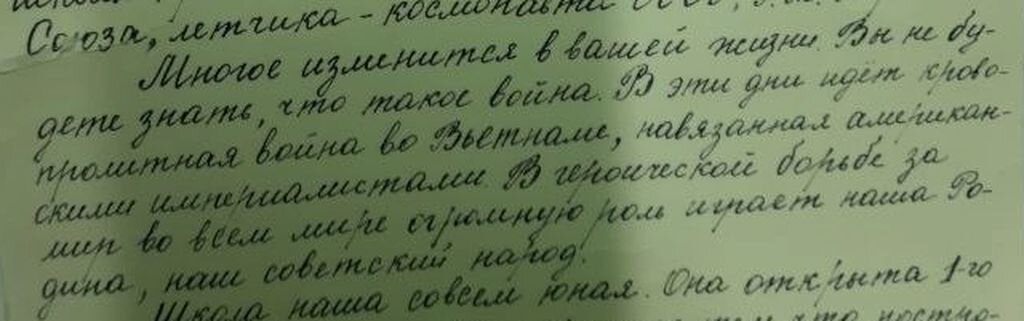 Союза, летчика-космонавта СССР,
Многое изменится в вашей жизни. Вы не бу-
дете знать, что такое война. В эти дни идёт крово-
пролитная война во Вьетнаме, навязанная американ-
скими империалистами. В героической борьбе за
мир во всем мире огромную роль играет наша Ро-
дина, наш советский народ.
Школа наша совсем юная. Она открыта 1-го
что постро-